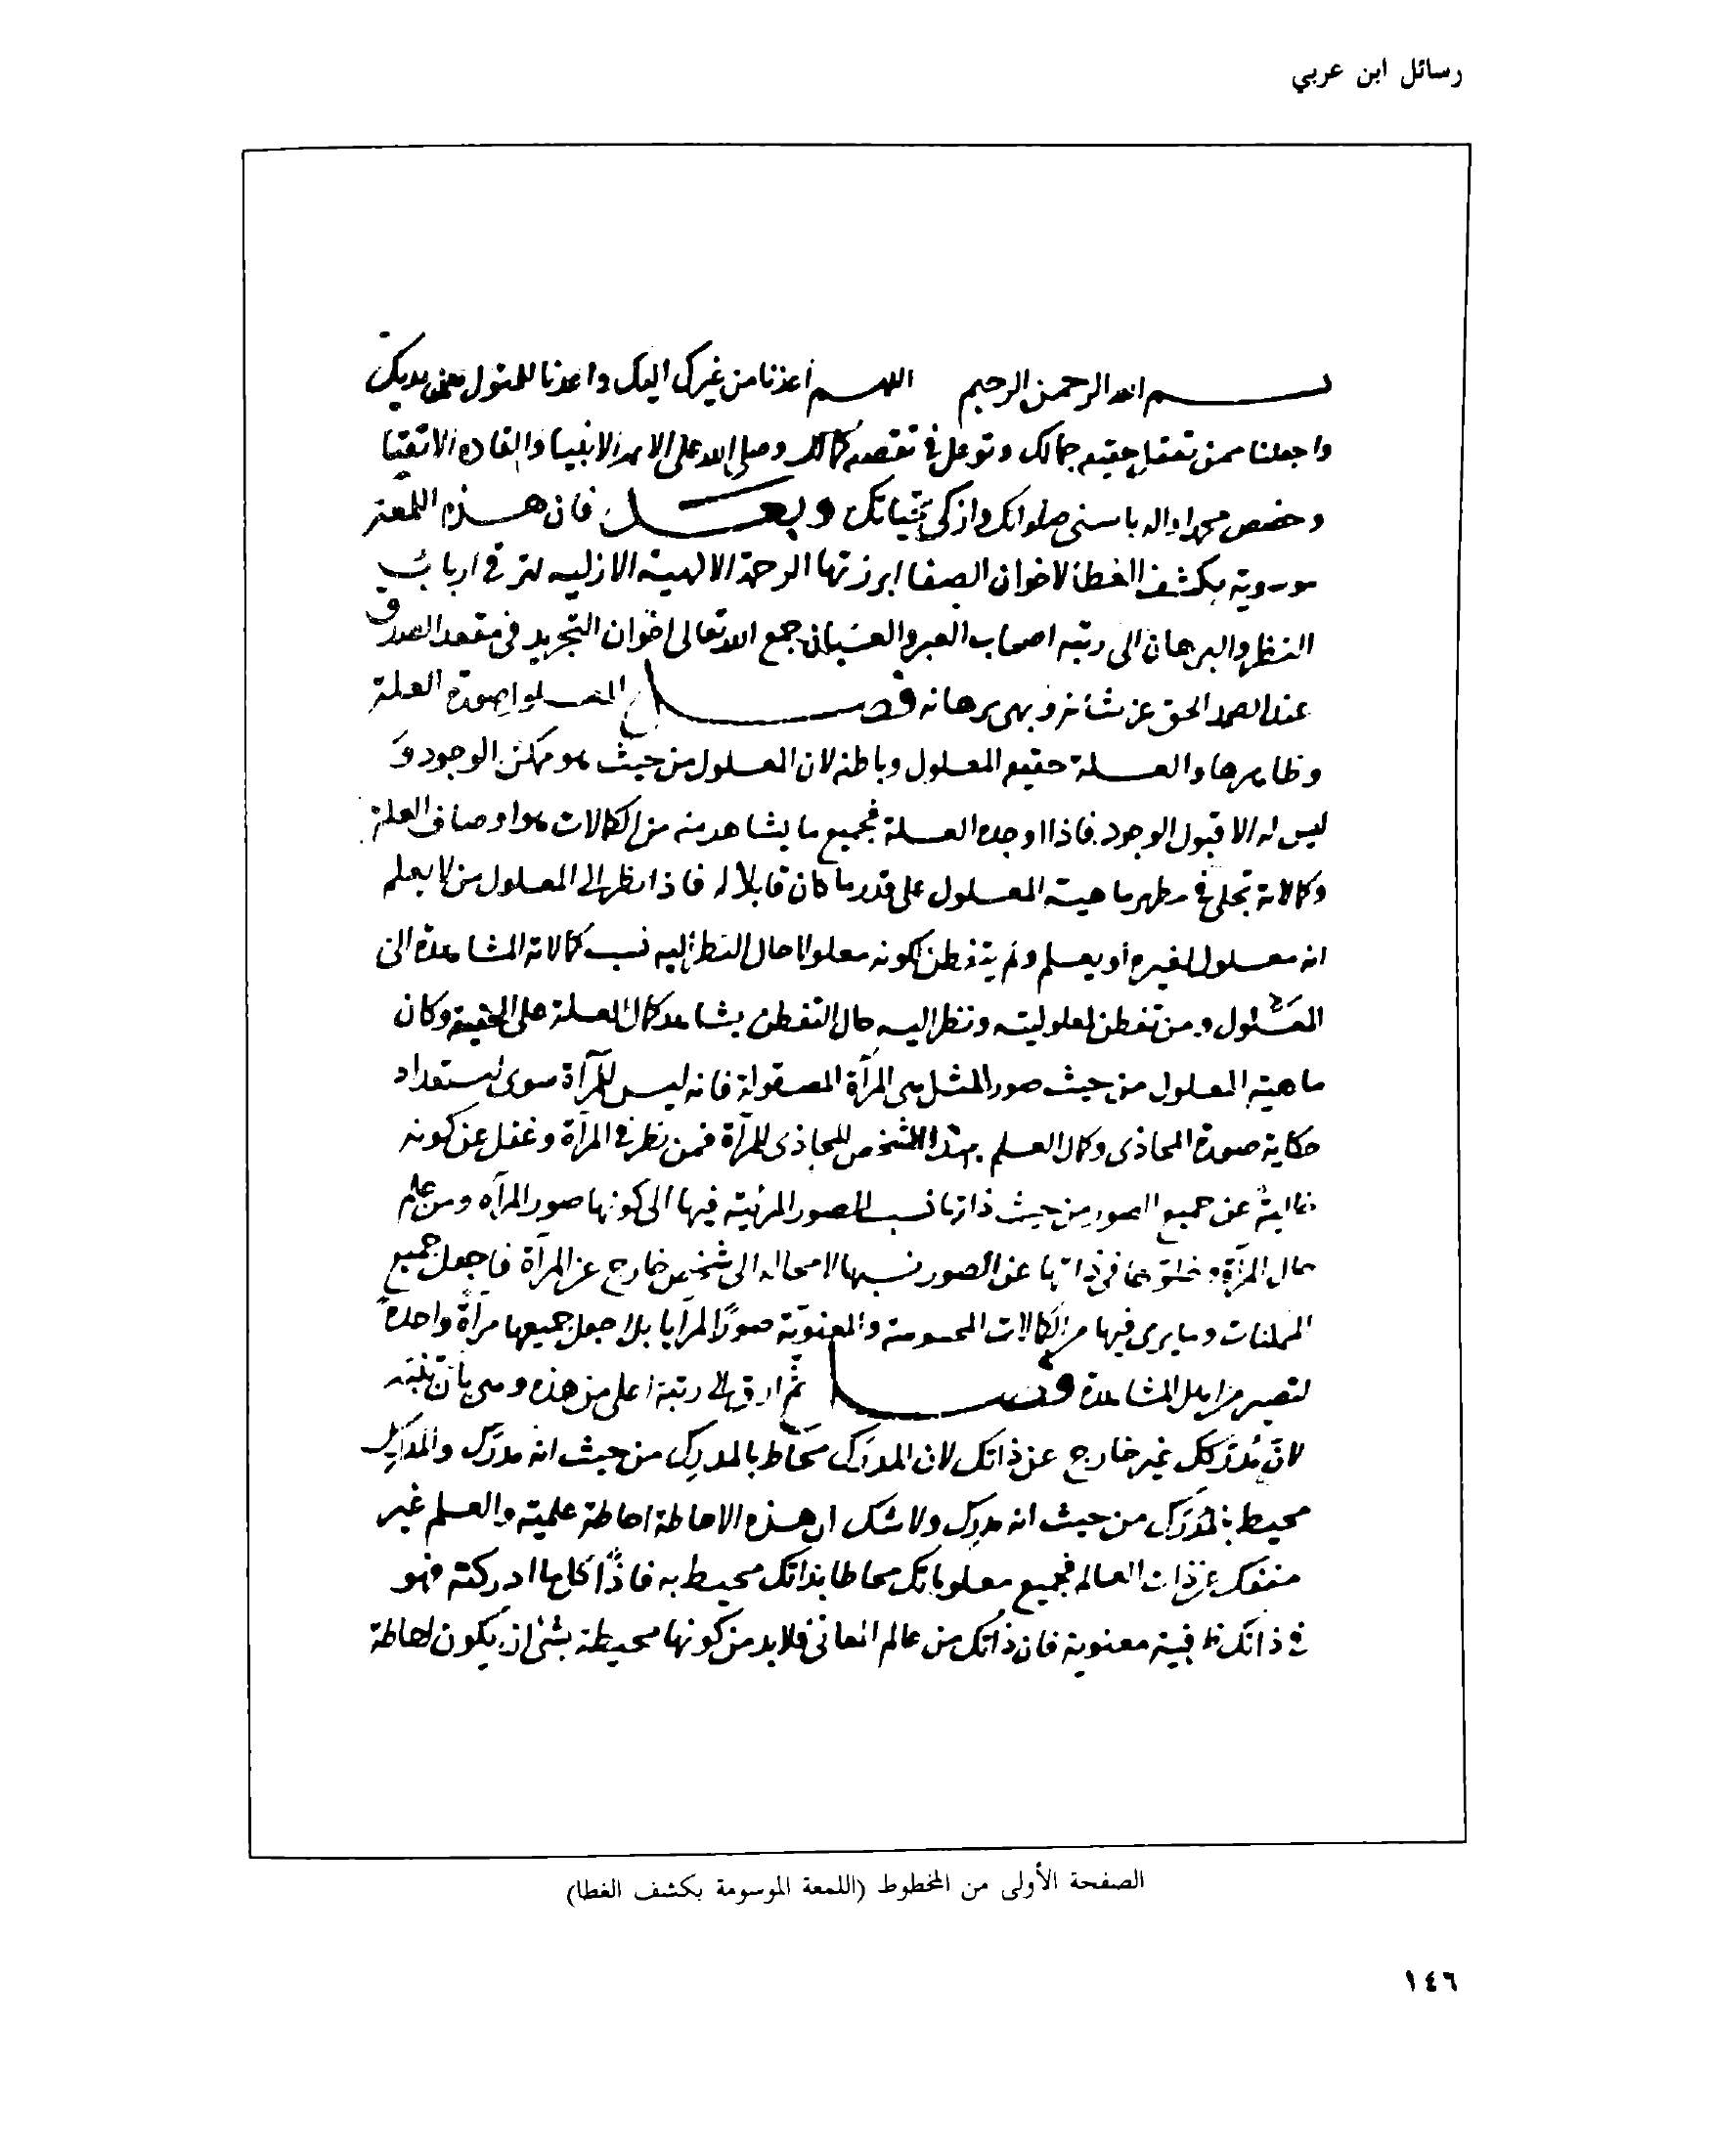 رسائل ابن عربي
بسم الله الرحمن الرحيم اللهم أعذنا من غيرك اليك واعدنا للمثول بين يديك
واجعلنا ممن تعقل حقيقه جمالك وتوغل في كمالك وصلى الله على الانبيا والقاده الاتقيا
وخصص محمدا واله باسنى صلواتك وازكى تحياتك وبعد فان هذه اللمعة
بكشف الغطا لاخوان الصفا ابرزتها الرحمة الالهية الازليه لترقي ارباب
النظر والبرهان الى رتبه اصحاب العبر والعيان جمع الله تعالى اخوان التجريد فى مقعد الصدق
عند الصمد الحق عز شأنه وبهى برهانه فصل المعلول صورة العلة
وظاهرها والعلة حقيقه المعلول وباطنه لان المعلول من حيث هو ممكن الوجود و
ليس له الا قبول الوجود فاذا اوجده العلة فجميع ما يشاهد منه من الكمالات هو اوصاف العلة
وكمالاته تجلى في مظهر ماهية المعلول على قدر ما كان قابلا له فاذا نظر الى المعلول من لا يعلم
انه معلول لغيره أو يعلم ولم يتفطن لكونه معلولا حال النظر اليه نسب كمالاته المشاهدة الى
المعلول ومن تفطن لمعلوليته ونظر اليه حال التفطن يشاهد كمال العلة على الحقيقة وكان
ماهية المعلول من حيث صور المثل هى المرآة المصقولة فانه ليس للمرآة سوى استعداد
حكاية صورة المحاذى وكمال العلم بهذا الشخص المحاذى للمرآة فمن نظر في المرآة وغفل عن كونه
خالية عن جميع الصور من حيث ذاتها نسب الصور المرئية فيها الى كونها صور المرآه ومن علم
حال المرآة وخلوها فى ذاتها عن الصور نسبها لا محاله الى شخص خارج عن المرآة فاجعل جميع
الممكنات وما يرى فيها من الكمالات المحسوسة والمعنوية صور المرايا بل اجعل جميعها مرآة واحدة
لتصير من اهل المشاهدة فصل ثم ارق الى رتبة اعلى من هذه وهى بان تتنبه
لان مدركك غير خارج عن ذاتك لان المدرك محاط بالمدرك من حيث انه مدرك والمدرك
محيط بالمدرك من حيث انه مدرك ولا شك ان هذه الاحاطة احاطة علمية والعلم غير
منفك عن ذات العالم فجميع معلوماتك محاطا بذاتك محيط به فاذا كلما ادركته فهو
في ذاتك معنوية فان ذاتك من عالم المعانى فلا بد من كونها محيطة بشئ ان يكون احاطة
الصفحة الأولى من المخطوط (اللمعة الموسومة بكشف الغطا)
١٤٦